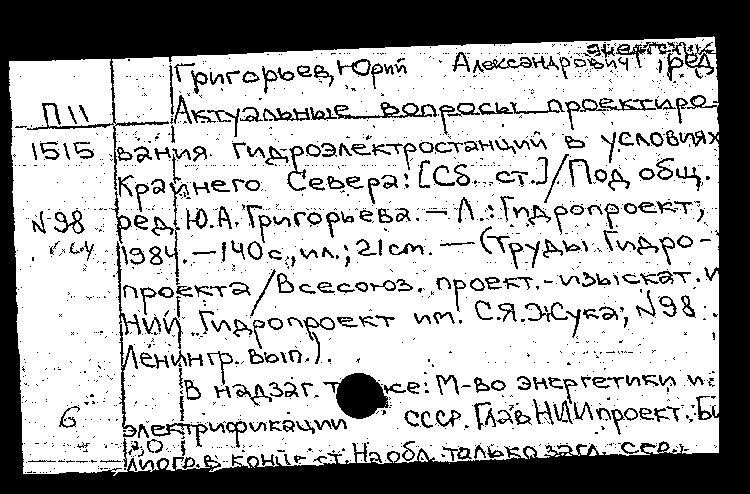 энергетик
Григорьев, Юрий Александрович , ред.
П11
Актуальные вопросы проектиро-
1515 вания гидроэлектростанций в условиях
Крайнего Севера: [Сб. ст.] / Под общ.
N98 ред. Ю.А. Григорьева. — Л.: Гидропроект,
1984. — 140 с., ил.; 21 см. — (Труды Гидро-
проекта / Всесоюз. проект.-изыскат. и
НИИ Гидропроект им. С.Я. Жука; N98.
Ленингр. вып.).
В надзаг. также: М-во энергетики и
6 электрификации СССР. ГлавНИИпроект. Би
20
лиогр. в конце ст. На обл. только загл. сер.